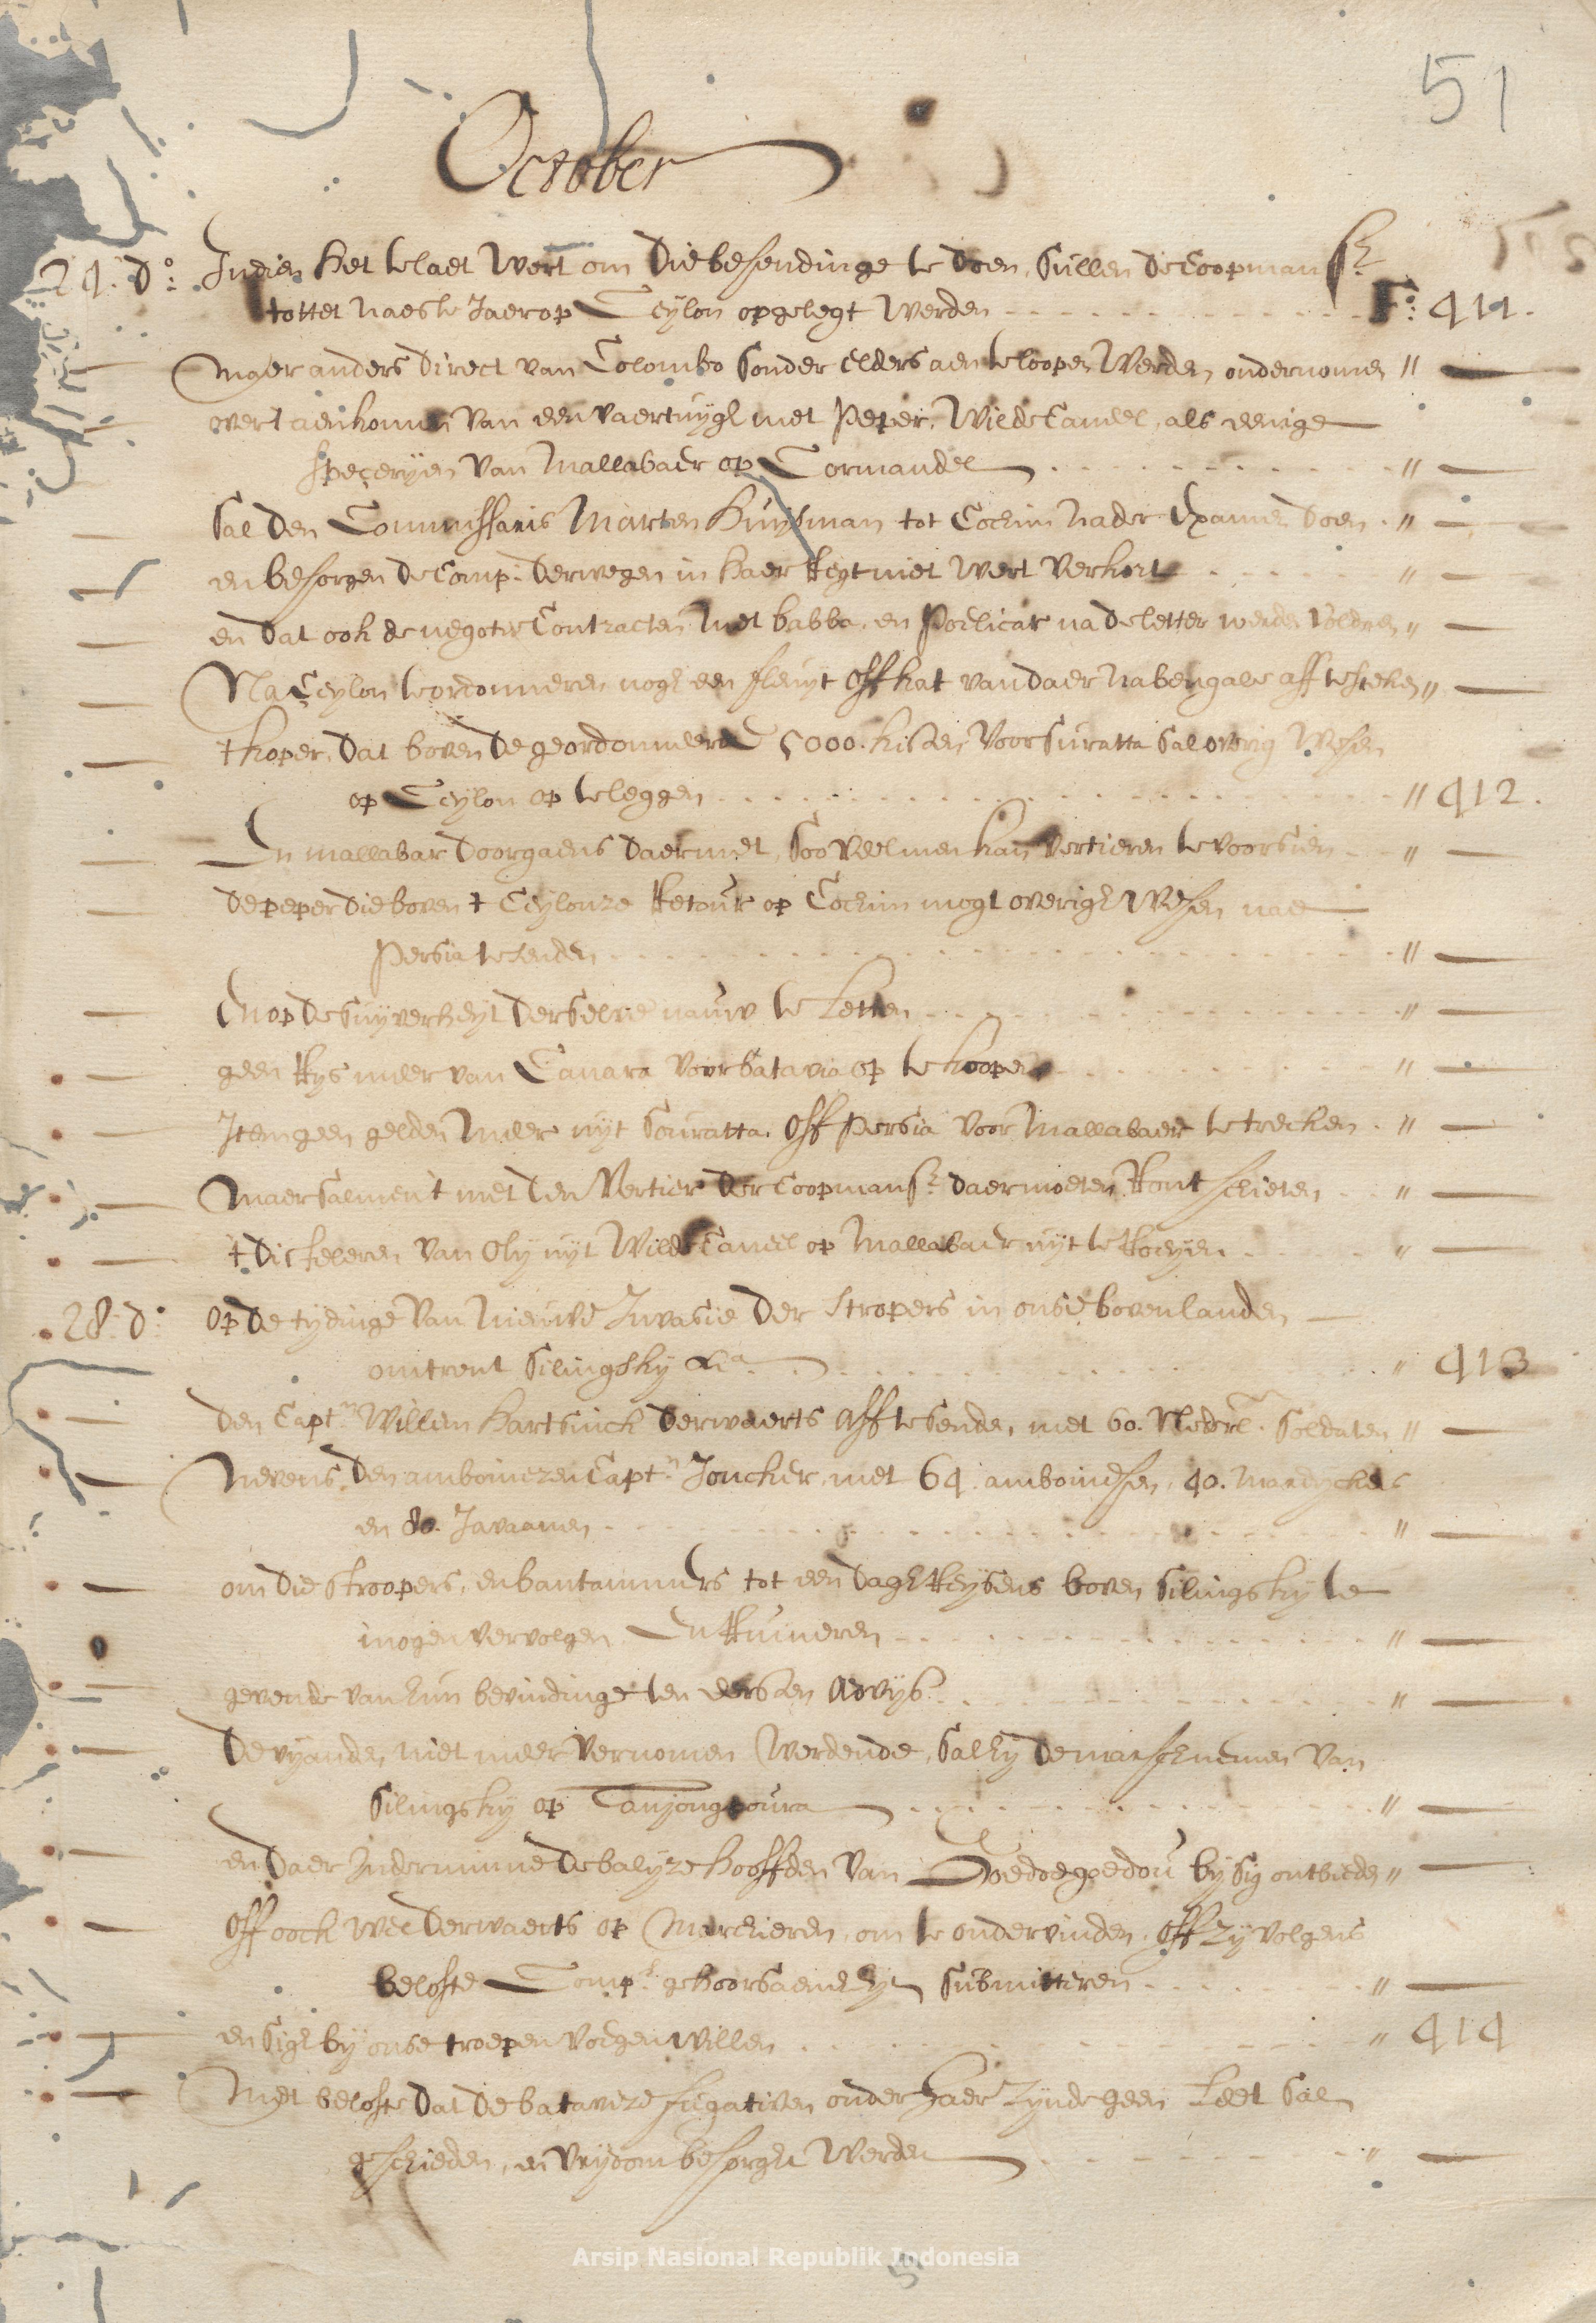 51
October
24. do: Indien het te laet wert om die besendinge te doen, sullen de Coopmansz
tottet naeste Jaer op Ceylon opgelegt werden fo: 411.
maer anders direct van Colombo sonder elders aen te loopen werden ondernomen "
over 't aenkomen van een vaertuygh met Peper, Wilde Caneel, als eenige
specerijen van Mallabaer op Cormandel "
sal den Commissaris Marten Huijsman tot Cochin nader Examen doen "
en besorgen de Comp: derwegen in haer Regt niet wert verkort "
en dat ook de negotie Contracten met babba, en Poelicar na de letter werden voldaen "
Na Ceylon te ordonneren nogh een fluyt off hat van daer na bengale aff te steken "
't koper, dat boven de geordonneerde 5000. kisten voor Suratta sal overig wesen
op Ceylon op te leggen " 412.
En mallabar doorgaens daermet, soo veel men kan vertieren te voorsien "
de peper die boven 't Ceylonze Retour op Cochim mogt overigh wesen nae
Persia te senden "
En op de suyverheyt derselve nauw te Letten "
geen Rys meer van Canara voor batavia op te koopen "
Item geen gelden meer uyt Souratta, off Persia voor Mallabaer te trecken "
Maer sal men 't met den Vertier der Coopmansz: daer moeten Ront schieten "
't disteleren van Oly uyt Wilde Caneel op Mallabaer uyt te Roeyen "
28. do: Op de tydinge van nieuwe Invasie der stropers in onse bovenlanden
omtrent Silingsky &a " 413
den Captn Willem Hartsinck derwaerts aff te senden, met 60. Nederl. soldaten "
Nevens den amboinezen Captn Joncker, met 64. amboinesen, 40. mardyckers
en 80. Javaanen "
om die stroopers, en bantammers tot een dagh Reysens boven Silingsky te
mogen vervolgen En Ruineren "
gevende van hun bevindinge ten eersten advys "
De vyanden niet meer vernomen werdende, sal hy de marsch nemen van
Silingsky op Tanjongpoura "
en daer Inderminne de balyze hooffden van Goedoegoedou by sig ontbieden "
Off oock wel derwaerts op Marchieren, om te ondervinden, off zy volgens
belofte Comp: gehoorsaemheyt submitteren "
en sigh by onse troepen voegen willen " 414
Met belofte dat de batavize fugativen onder haer zynde geen Leet sal
geschieden, en vrydom besorght werden "
Arsip Nasional Republik Indonesia